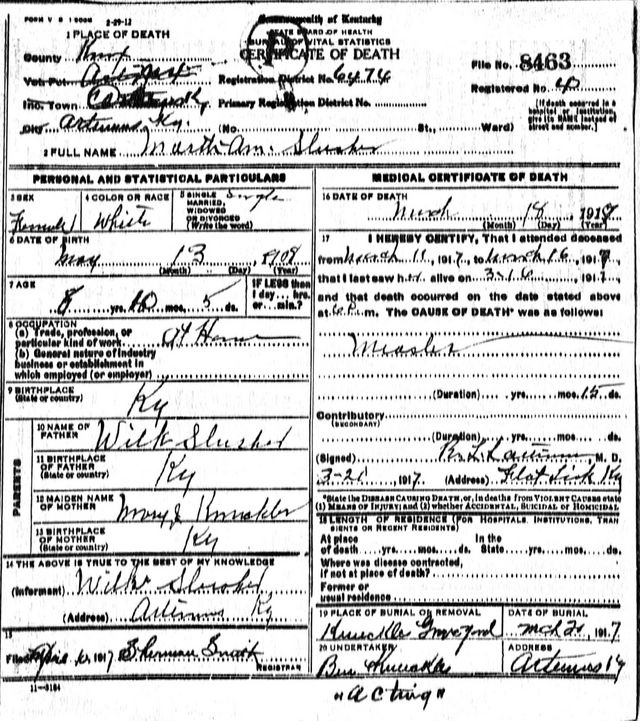 FORM V S 1 500M 2-29-12
Commonwealth of Kentucky
STATE BOARD OF HEALTH
BUREAU OF VITAL STATISTICS
CERTIFICATE OF DEATH
1 PLACE OF DEATH
County Knox
Vot. Pct.
Registration District No. 6474
File No. 8463
Inc. Town
Primary Registration District No.
Registered No. 40
City Artemus Ky. (No. St., Ward)
(If death occurred in a hospital or institution, give its NAME instead of street and number.)
2 FULL NAME Martha m. Slusher
PERSONAL AND STATISTICAL PARTICULARS
3 SEX Female
4 COLOR OR RACE White
5 SINGLE, MARRIED, WIDOWED OR DIVORCED (Write the word) Single
6 DATE OF BIRTH
may 13, 1908
(Month) (Day) (Year)
7 AGE
8 yrs. 10 mos. 5 ds.
IF LESS than 1 day... hrs. or...min.?
8 OCCUPATION
(a) Trade, profession, or particular kind of work At Home
(b) General nature of industry business or establishment in which employed (or employer)
9 BIRTHPLACE (State or country) Ky
PARENTS
10 NAME OF FATHER Wilk Slusher
11 BIRTHPLACE OF FATHER (State or country) Ky
12 MAIDEN NAME OF MOTHER Mary J Knuckles
13 BIRTHPLACE OF MOTHER (State or country) Ky
14 THE ABOVE IS TRUE TO THE BEST OF MY KNOWLEDGE
(Informant) Wilk Slusher
(Address) Artemus Ky
15
Filed 1917 Sherman Smith
REGISTRAR
11-3184
MEDICAL CERTIFICATE OF DEATH
16 DATE OF DEATH
March 18, 1917
(Month) (Day) (Year)
17 I HEREBY CERTIFY, That I attended deceased
from March 11, 1917, to March 16, 1917,
that I last saw her alive on 3-16, 1917,
and that death occurred on the date stated above
at 6 P. m. The CAUSE OF DEATH* was as follows:
Measles
(Duration) yrs. mos. 15 ds.
Contributory
(SECONDARY)
(Duration) yrs. mos. ds.
(Signed) M. D.
3-21, 1917. (Address) Flat Lick Ky
*State the DISEASE CAUSING DEATH, or, in deaths from VIOLENT CAUSES state
(1) MEANS OF INJURY; and (2) whether ACCIDENTAL, SUICIDAL or HOMICIDAL
18 LENGTH OF RESIDENCE (FOR HOSPITALS, INSTITUTIONS, TRANSIENTS OR RECENT RESIDENTS)
At place of death yrs. mos. ds. In the State yrs. mos. ds.
Where was disease contracted, if not at place of death?
Former or usual residence
19 PLACE OF BURIAL OR REMOVAL
Knuckles Graveyard
DATE OF BURIAL
Mch 21, 1917
20 UNDERTAKER
Ben Knuckles
ADDRESS
Artemus Ky
"Acting"